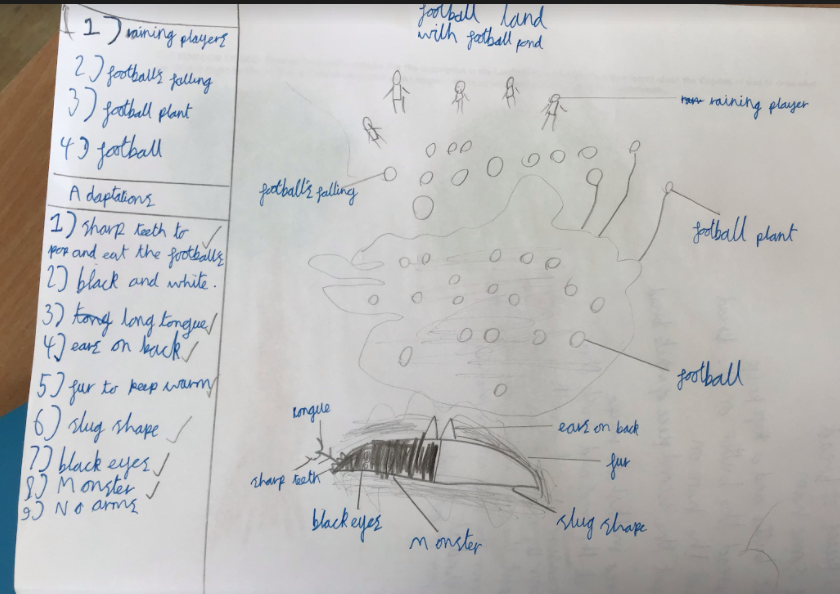 football land
with football pond
1) raining players
2) football's falling
3) football plant
4) football
Adaptations
1) sharp teeth to
pop and eat the footballs
2) black and white.
3) tong long tongue
4) ears on back
5) fur to keep warm
6) slug shape
7) black eyes
8) Monster
9) No arms
raining player
football's falling
football plant
football
tongue
ears on back
sharp teeth
fur
black eyes
Monster
slug shape